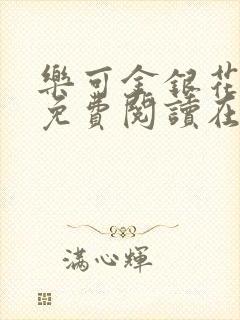 樂可金銀花
免費閱讀在
滿心輝